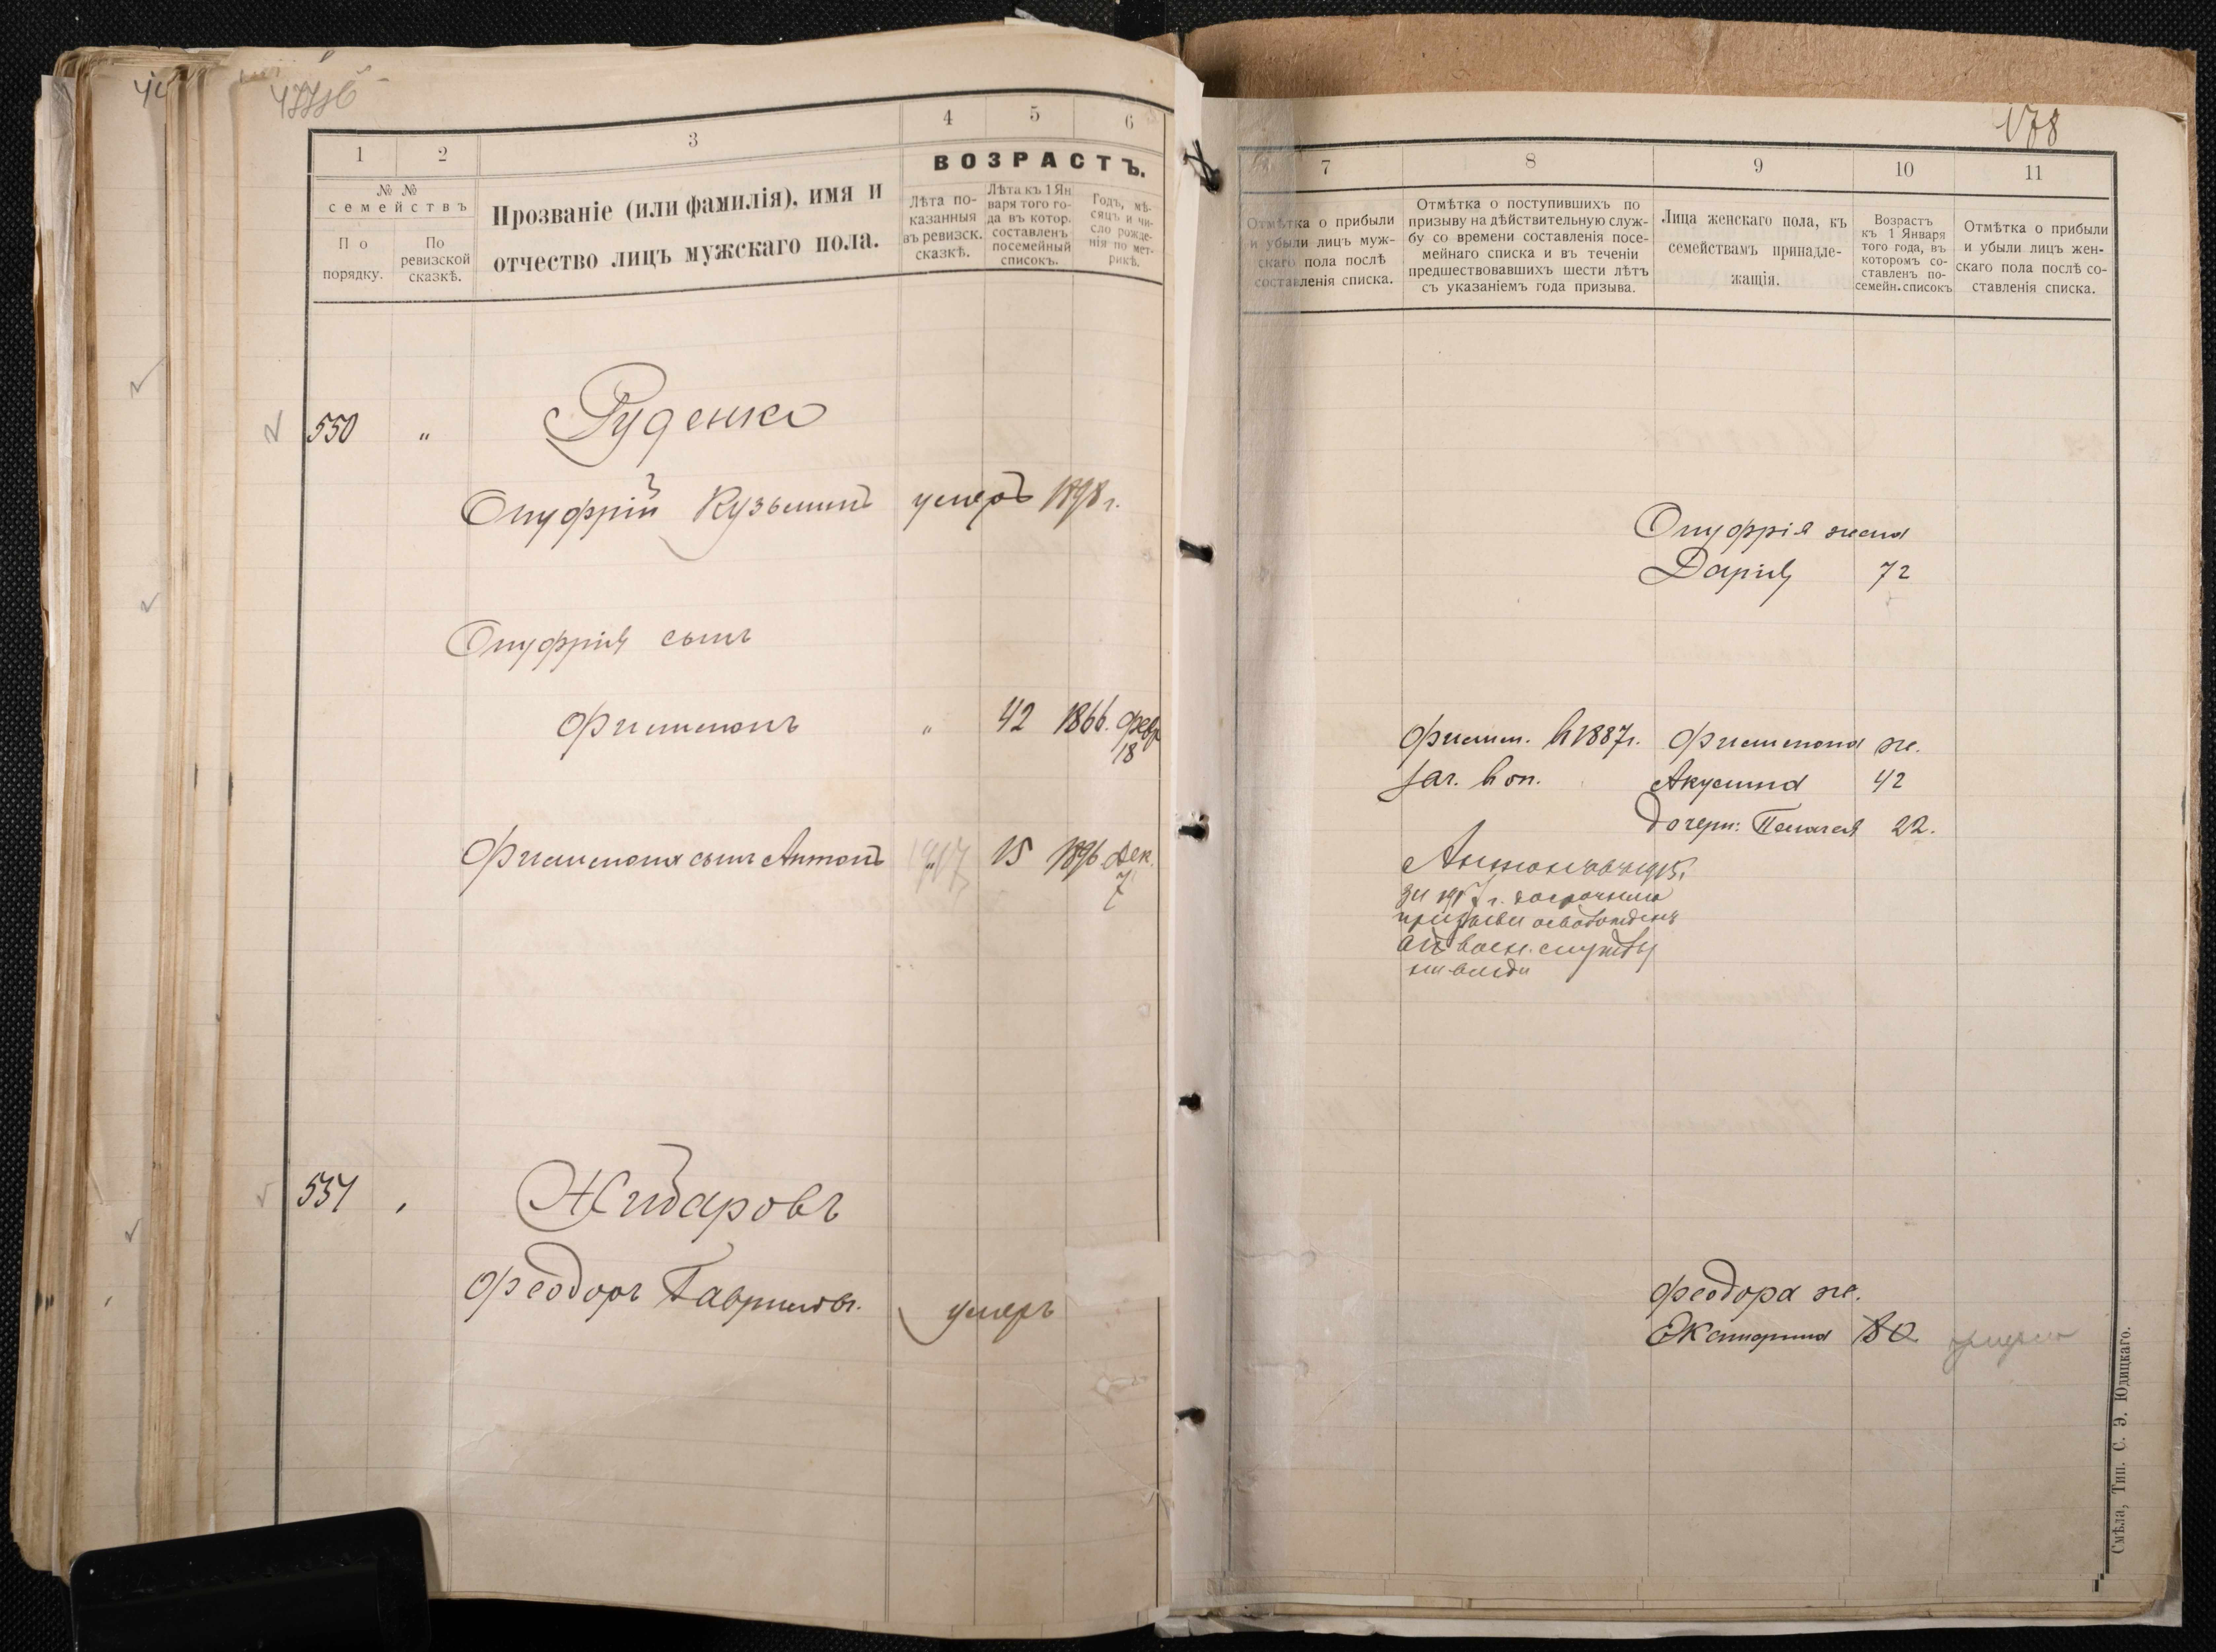 177об
1
2
3
4
5
6
№ №
семействъ
По
порядку.
По
ревизской
сказкѣ.
Прозваніе (или фамилія), имя и
отчество лицъ мужскаго пола.
ВОЗРАСТЪ.
Лѣта по-
казанныя
въ ревизск.
сказкѣ.
Лѣта къ 1 Ян
варя того го-
да въ котор.
составленъ
посемейный
списокъ.
Годъ, мѣ-
сяцъ и чи-
сло рожде-
нія по мет-
рикѣ.
550 " Руденко
Онуфрій Кузьминъ умеръ 1898 г.
Онуфрія сынъ
Филимонъ " 42 1866. Февр
18
Филимона сынъ Антонъ 1917 " 15 1896 Дек.
7
551 Жидаровъ
Феодоръ Гаврилов. умеръ
178
7
8
9
10
11
Отмѣтка о прибыли
и убыли лицъ муж-
скаго пола послѣ
составленія списка.
Отмѣтка о поступившихъ по
призыву на дѣйствительную служ-
бу со времени составленія посе-
мейнаго списка и въ теченіи
предшествовавшихъ шести лѣтъ
съ указаніемъ года призыва.
Лица женскаго пола, къ
семействамъ принадле-
жащія.
Возрастъ
къ 1 Января
того года, въ
которомъ со-
ставленъ по-
семейн. списокъ
Отмѣтка о прибыли
и убыли лицъ жен-
скаго пола послѣ со-
ставленія списка.
Онуфрія жена
Дарія 72
Филим. въ 1887 г. Филимона ж.
зач. в оп. Акулина 42
дочери: Пелагея 22.
Антонъ въ 1915 г.
досрочно
призыва освобожденъ
воен. службы
Феодора ж.
Екатерина 80 умерла
Смѣла, Тип. С. Э. Юдицкаго.